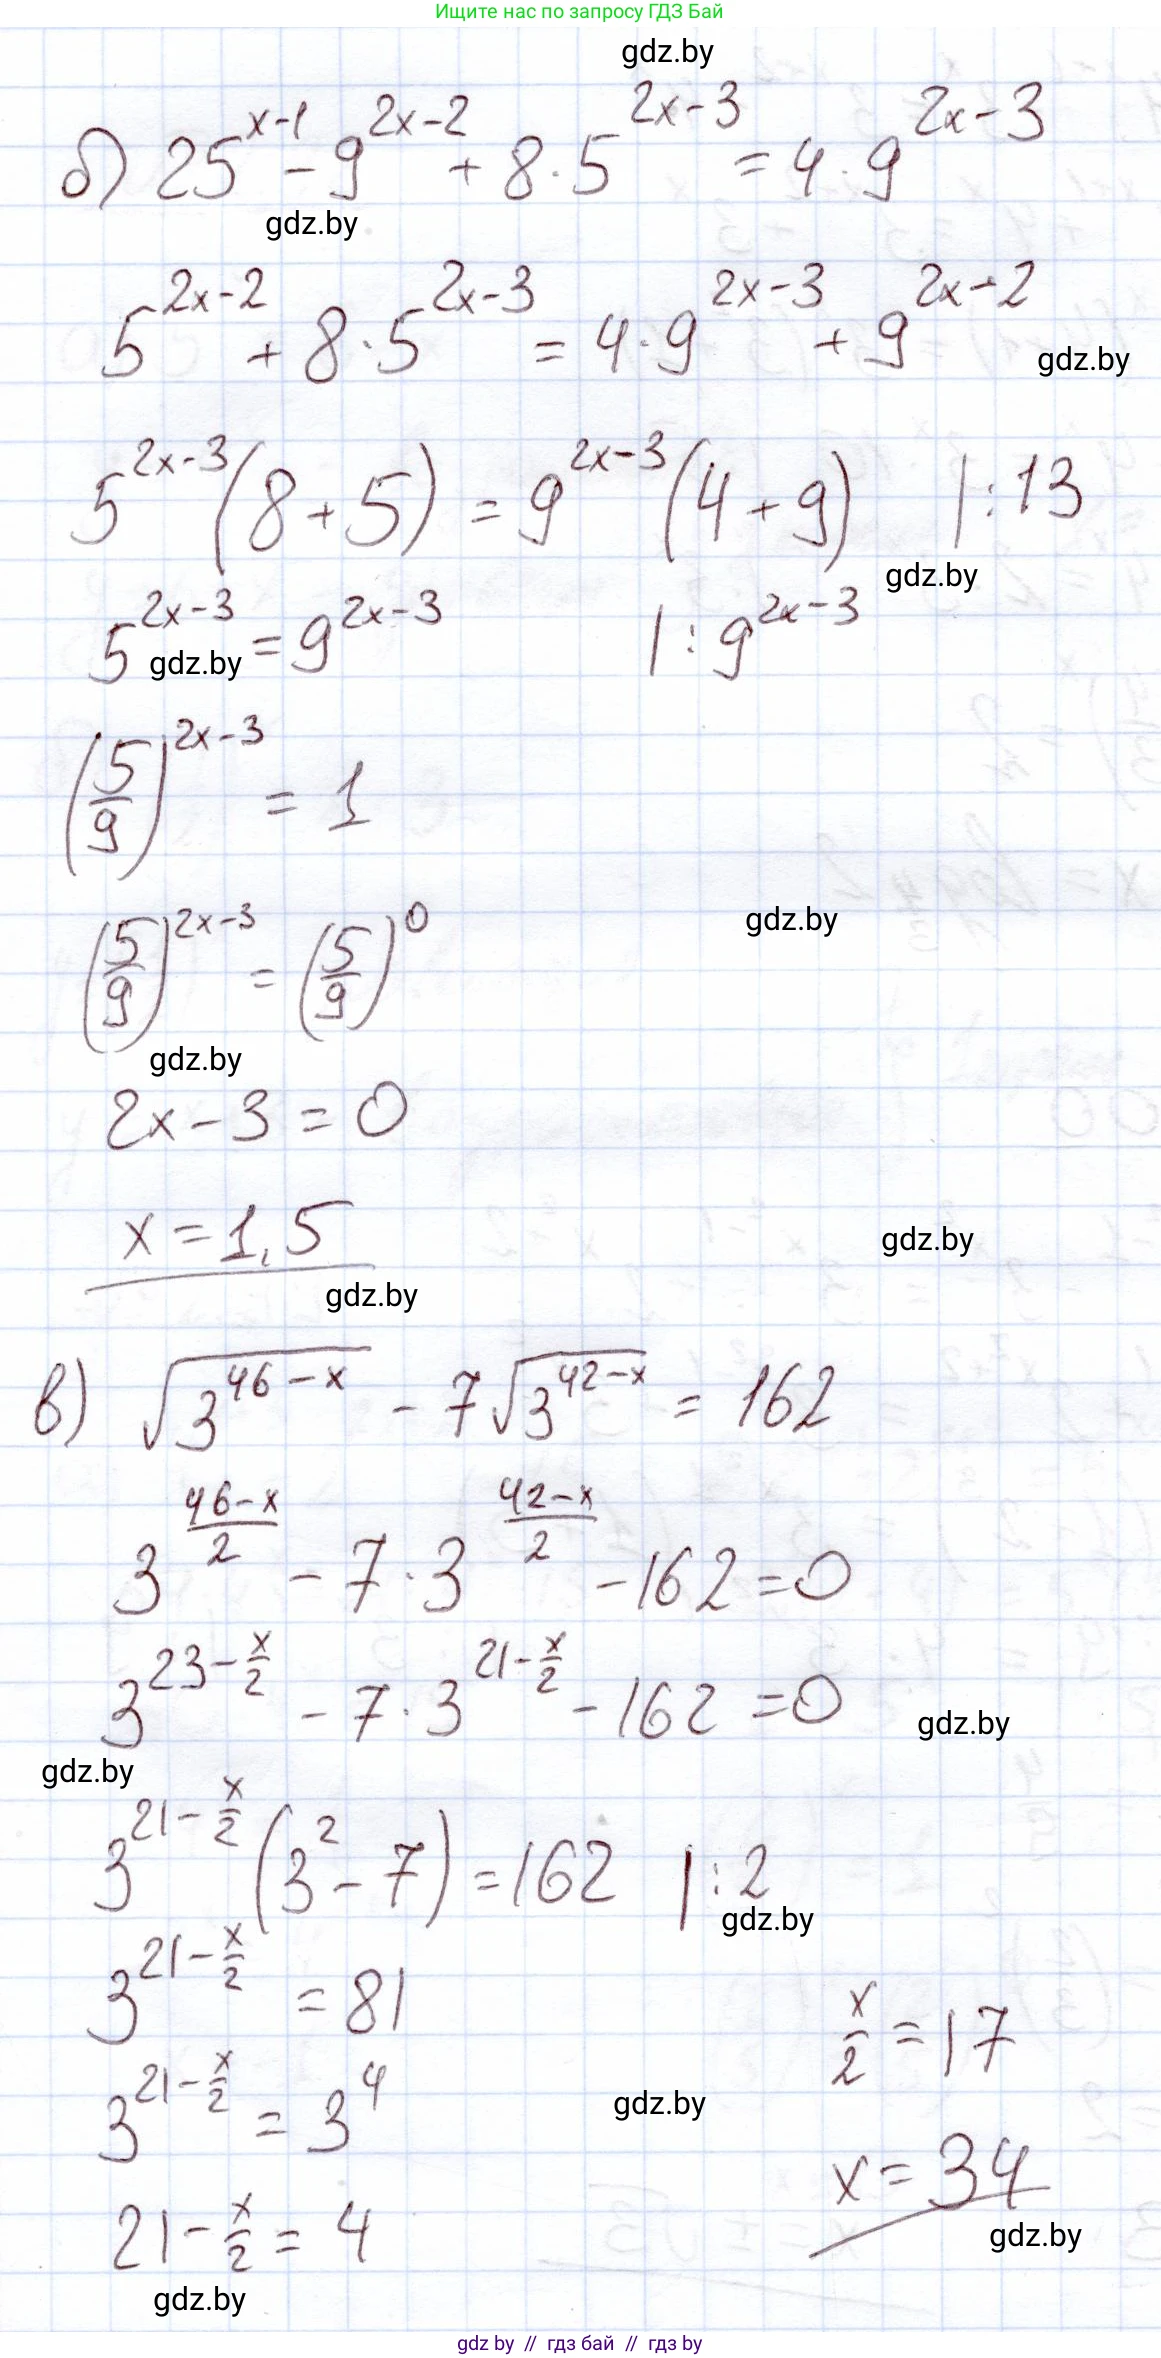 Ищите нас по запросу ГДЗ Бай
gdz.by
б) 25^{x-1} - 9^{2x-2} + 8·5^{2x-3} = 4·9^{2x-3}
gdz.by
5^{2x-2} + 8·5^{2x-3} = 4·9^{2x-3} + 9^{2x-2}
gdz.by
5^{2x-3}(8+5) = 9^{2x-3}(4+9) |:13
gdz.by
5^{2x-3} = 9^{2x-3} |:9^{2x-3}
gdz.by
(5/9)^{2x-3} = 1
(5/9)^{2x-3} = (5/9)^0
gdz.by
gdz.by
2x-3 = 0
x = 1,5
gdz.by
gdz.by
в) √(3^{46-x}) - 7√(3^{42-x}) = 162
3^{(46-x)/2} - 7·3^{(42-x)/2} - 162 = 0
3^{23-x/2} - 7·3^{21-x/2} - 162 = 0
gdz.by
gdz.by
3^{21-x/2}(3^2 - 7) = 162 |:2
gdz.by
3^{21-x/2} = 81
3^{21-x/2} = 3^4
gdz.by
21 - x/2 = 4
gdz.by
x/2 = 17
x = 34
gdz.by
gdz by // гдз бай // гдз by